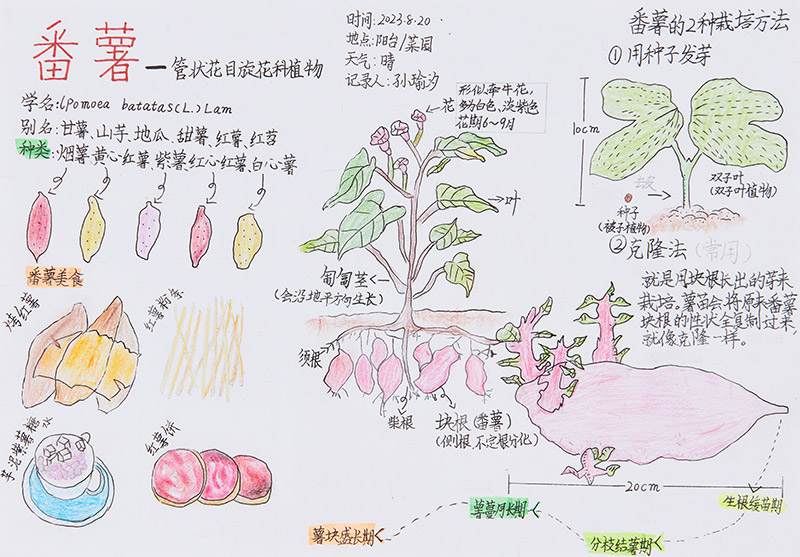 番薯
—管状花目旋花科植物
时间:2023.8.20
地点:阳台/菜园
天气:晴
记录人:孙瑜汐
学名:(Pomoea batatas(L.)Lam
别名:甘薯、山芋、地瓜、甜薯、红薯、红苕
种类:烟薯、黄心红薯、紫薯、红心红薯、白心薯
番薯美食
烤红薯
红薯粉条
芋泥紫薯糖水
红薯饼
花
形似牵牛花,
多为白色、淡紫色
花期6~9月
叶
匍匐茎
(会沿地平方向生长)
须根
柴根
块根(番薯)
(侧根、不定根分化)
番薯的2种栽培方法
①用种子发芽
10cm
种子
(被子植物)
双子叶
(双子叶植物)
②克隆法(常用)
就是用块根长出的芽来
栽培。薯苗会将原来番薯
块根的性状全复制过来,
就像克隆一样。
20cm
生根缓苗期
分枝结薯期
薯蔓同长期
薯块盛长期